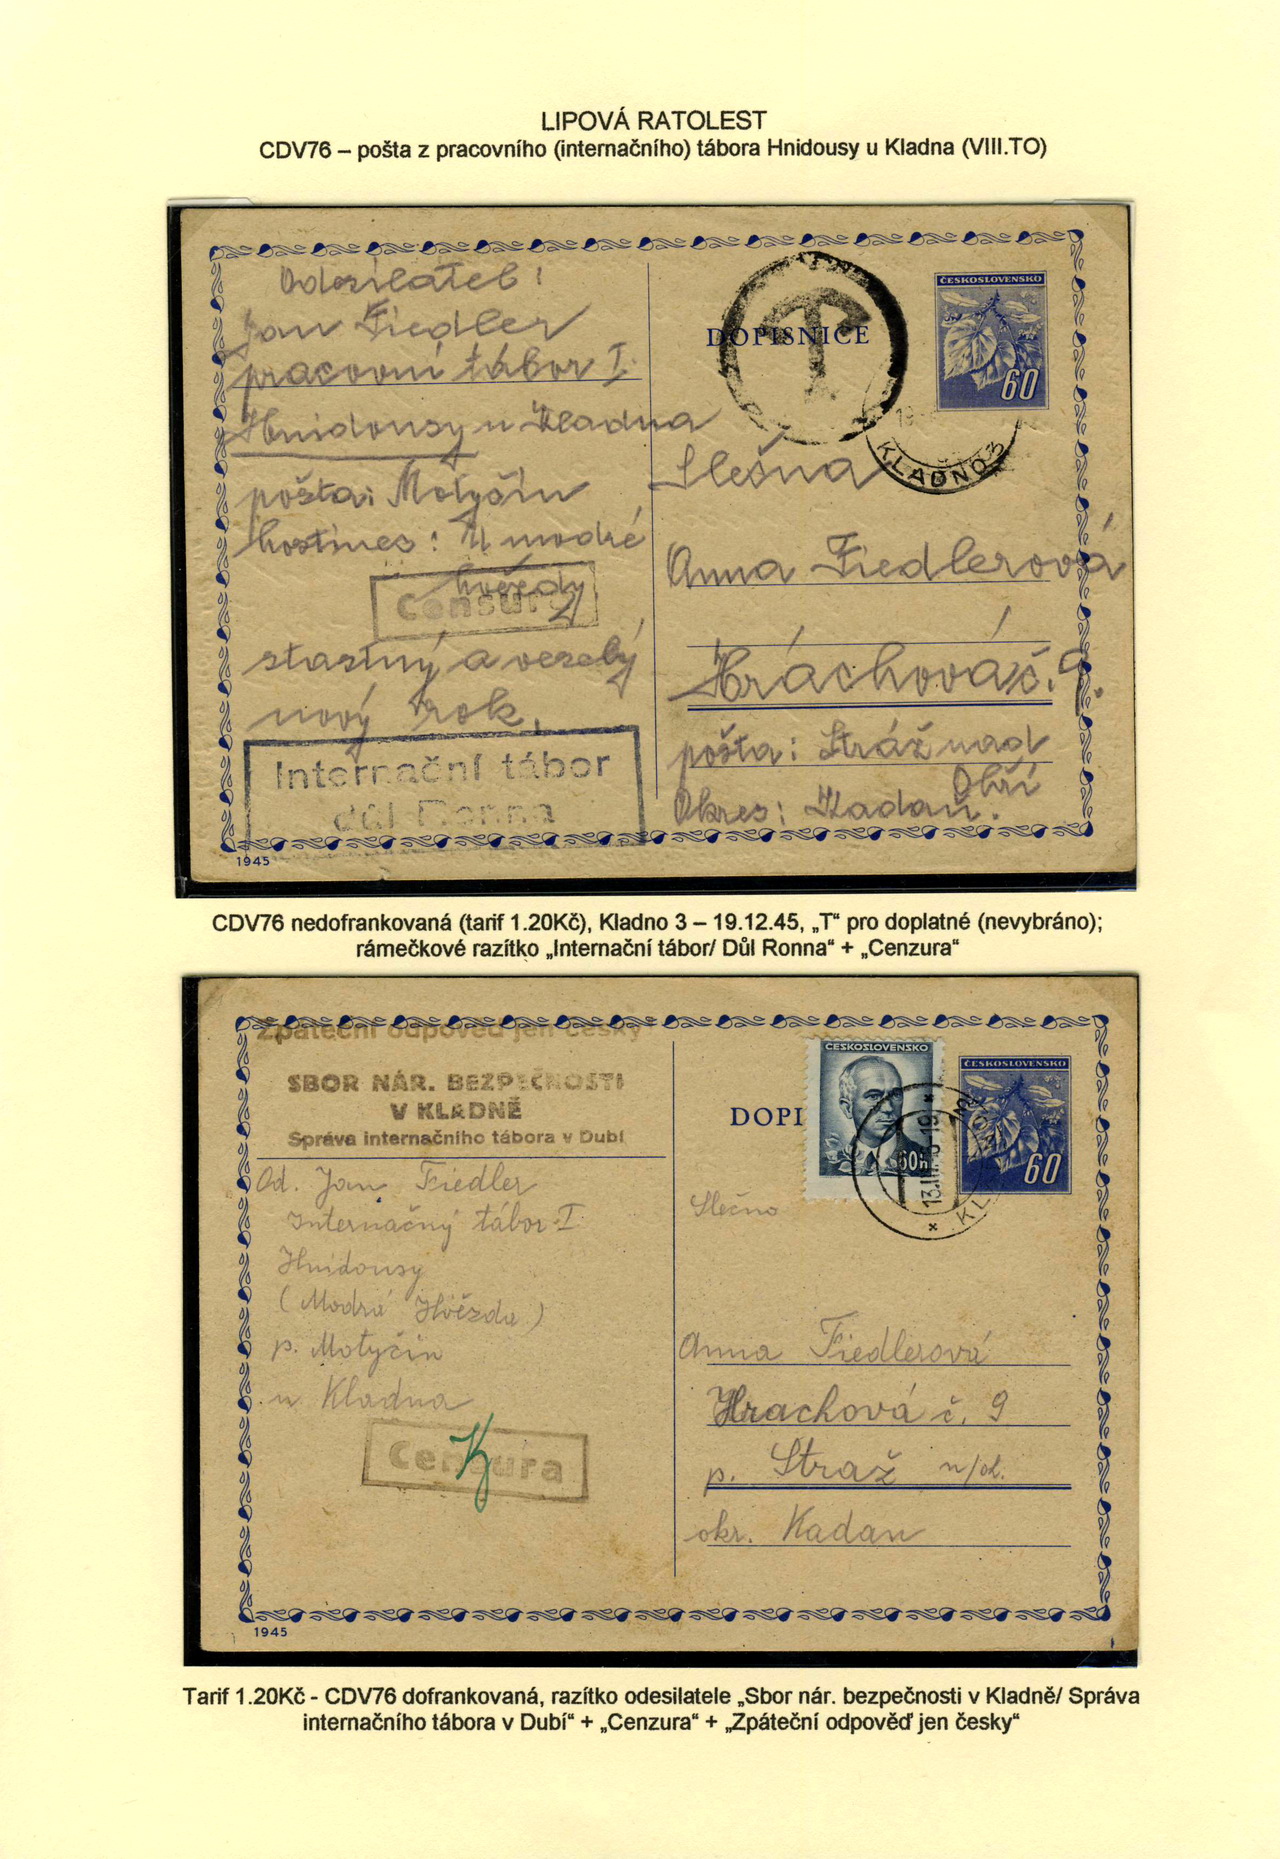 LIPOVÁ RATOLEST
CDV76 – pošta z pracovního (internačního) tábora Hnidousy u Kladna (VIII.TO)
Odesilatel:
Jan Fiedler
pracovní tábor I.
Hnidousy u Kladna
pošta: Motyčín
hostinec: U modré
hvězdy
Censura
stastný a veselý
nový rok.
Internační tábor
důl Ronna
1945
DOPISNICE
T
ČESKOSLOVENSKO
60
19
KLADNO 3
Slečna
Anna Fiedlerová
Hráchová č. 9.
pošta: Stráž nad
Ohří
Okres: Kadaň.
CDV76 nedofrankovaná (tarif 1.20Kč), Kladno 3 – 19.12.45, „T“ pro doplatné (nevybráno);
rámečkové razítko „Internační tábor/ Důl Ronna“ + „Cenzura“
Zpáteční odpověď jen česky
SBOR NÁR. BEZPEČNOSTI
V KLADNĚ
Správa internačního tábora v Dubí
Od. Jan Fiedler
Internačný tábor I
Hnidousy
(Modrá Hvězda)
p. Motyčín
u Kladna
Censura
1945
DOPI
ČESKOSLOVENSKO
60h
ČESKOSLOVENSKO
60
Slečno
Anna Fiedlerová
Hrachová č. 9
p. Straž n/oh.
okr. Kadan
Tarif 1.20Kč - CDV76 dofrankovaná, razítko odesilatele „Sbor nár. bezpečnosti v Kladně/ Správa
internačního tábora v Dubí“ + „Cenzura“ + „Zpáteční odpověď jen česky“